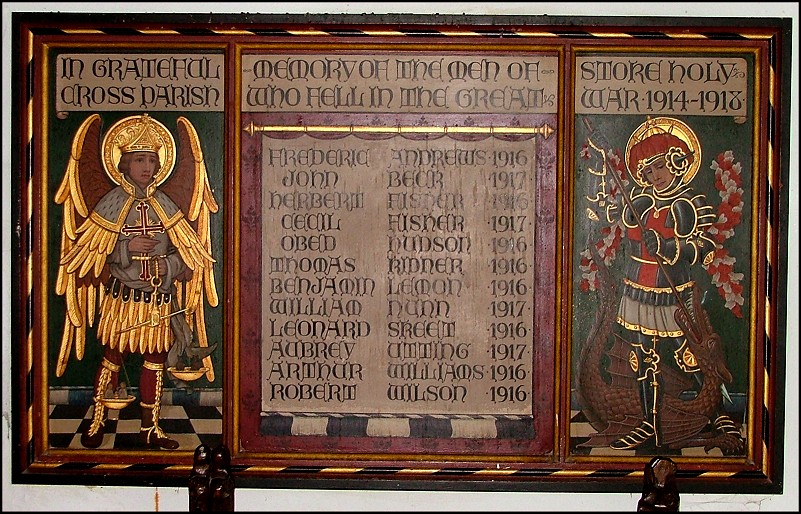 IN GRATEFUL MEMORY OF THE MEN OF STOKE HOLY
CROSS PARISH WHO FELL IN THE GREAT WAR · 1914-1918
FREDERIC ANDREWS · 1916
JOHN BECK · 1917
HERBERT FISHER · 1916
CECIL FISHER · 1917
OBED HUDSON · 1916
THOMAS KIDNER · 1916
BENJAMIN LEMON · 1916
WILLIAM NUNN · 1917
LEONARD SKEET · 1916
AUBREY UTTING · 1917
ARTHUR WILLIAMS · 1916
ROBERT WILSON · 1916